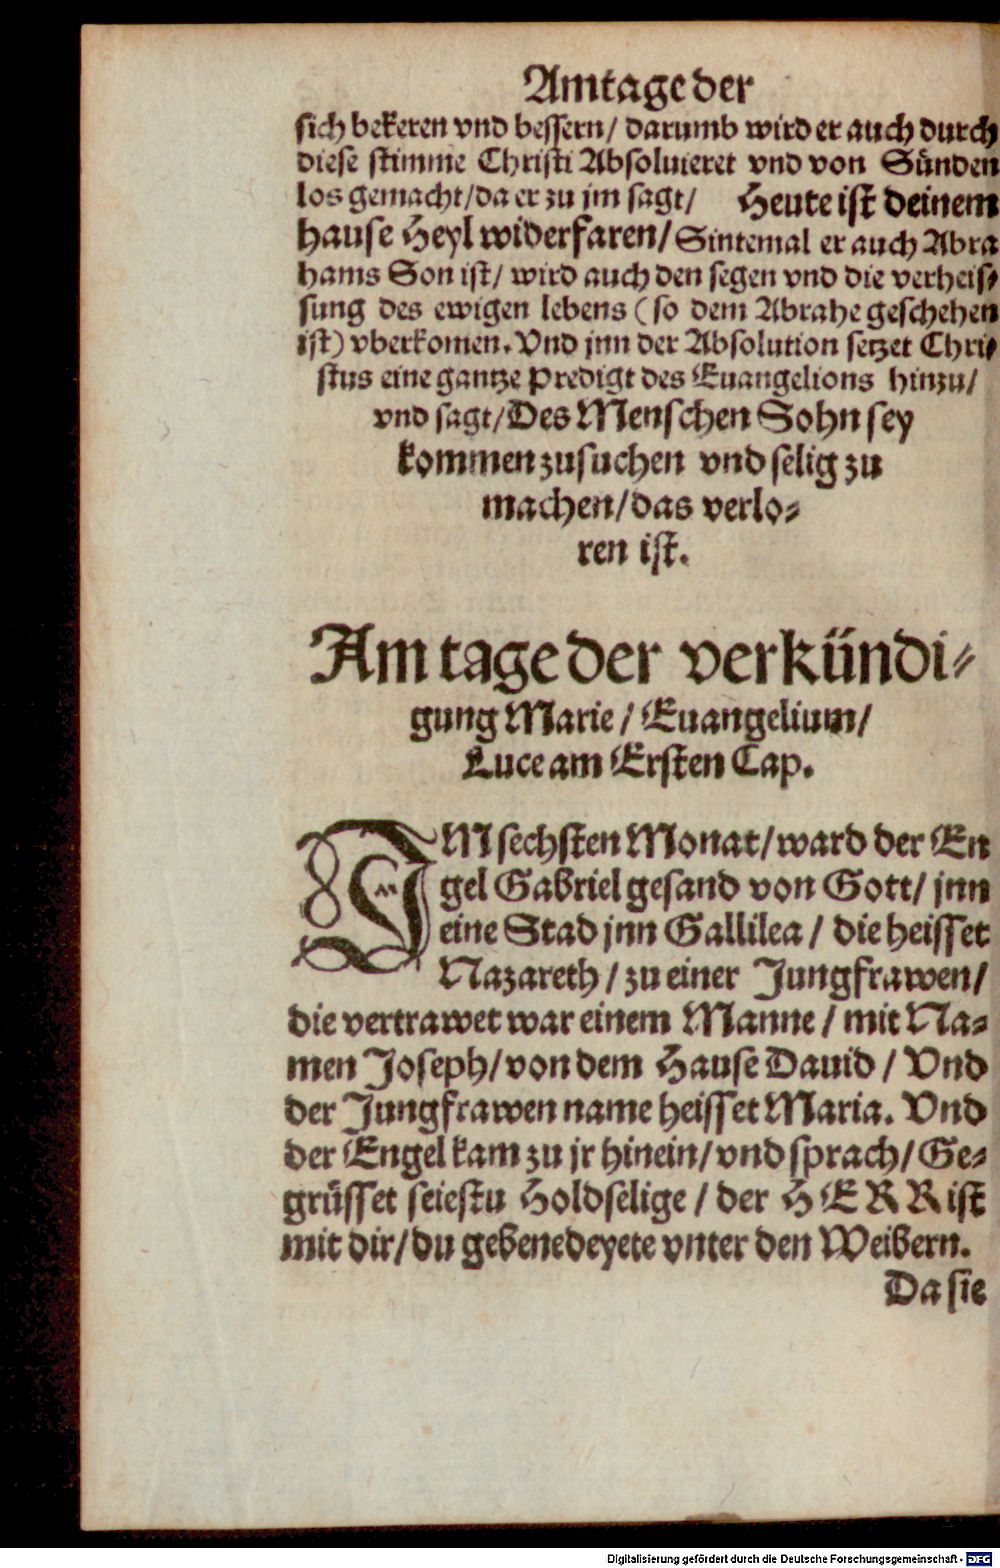 Am tage der
sich bekeren vnd bessern/ darumb wird er auch durch
diese stimme Christi Absoluieret vnd von Sünden
los gemacht/ da er zu jm sagt/ Heute ist deinem
hause Heyl widerfaren/ Sintemal er auch Abra
hams Son ist/ wird auch den segen vnd die verheis⸗
sung des ewigen lebens (so dem Abrahe geschehen
ist) vberkomen. Vnd jnn der Absolution setzet Chri⸗
stus eine gantze Predigt des Euangelions hinzu/
vnd sagt/ Des Menschen Sohn sey
kommen zusuchen vnd selig zu
machen/ das verlo⸗
ren ist.
Am tage der verkündi⸗
gung Marie/ Euangelium/
Luce am Ersten Cap.
IM sechsten Monat/ ward der En
gel Gabriel gesand von Gott/ jnn
eine Stad jnn Gallilea/ die heisset
Nazareth/ zu einer Jungfrawen/
die vertrawet war einem Manne/ mit Na⸗
men Joseph/ von dem Hause Dauid/ Vnd
der Jungfrawen name heisset Maria. Vnd
der Engel kam zu jr hinein/ vnd sprach/ Ge⸗
grüsset seiestu Holdselige/ der HERR ist
mit dir/ du gebenedeyete vnter den Weibern.
Da sie
Digitalisierung gefördert durch die Deutsche Forschungsgemeinschaft - DFG